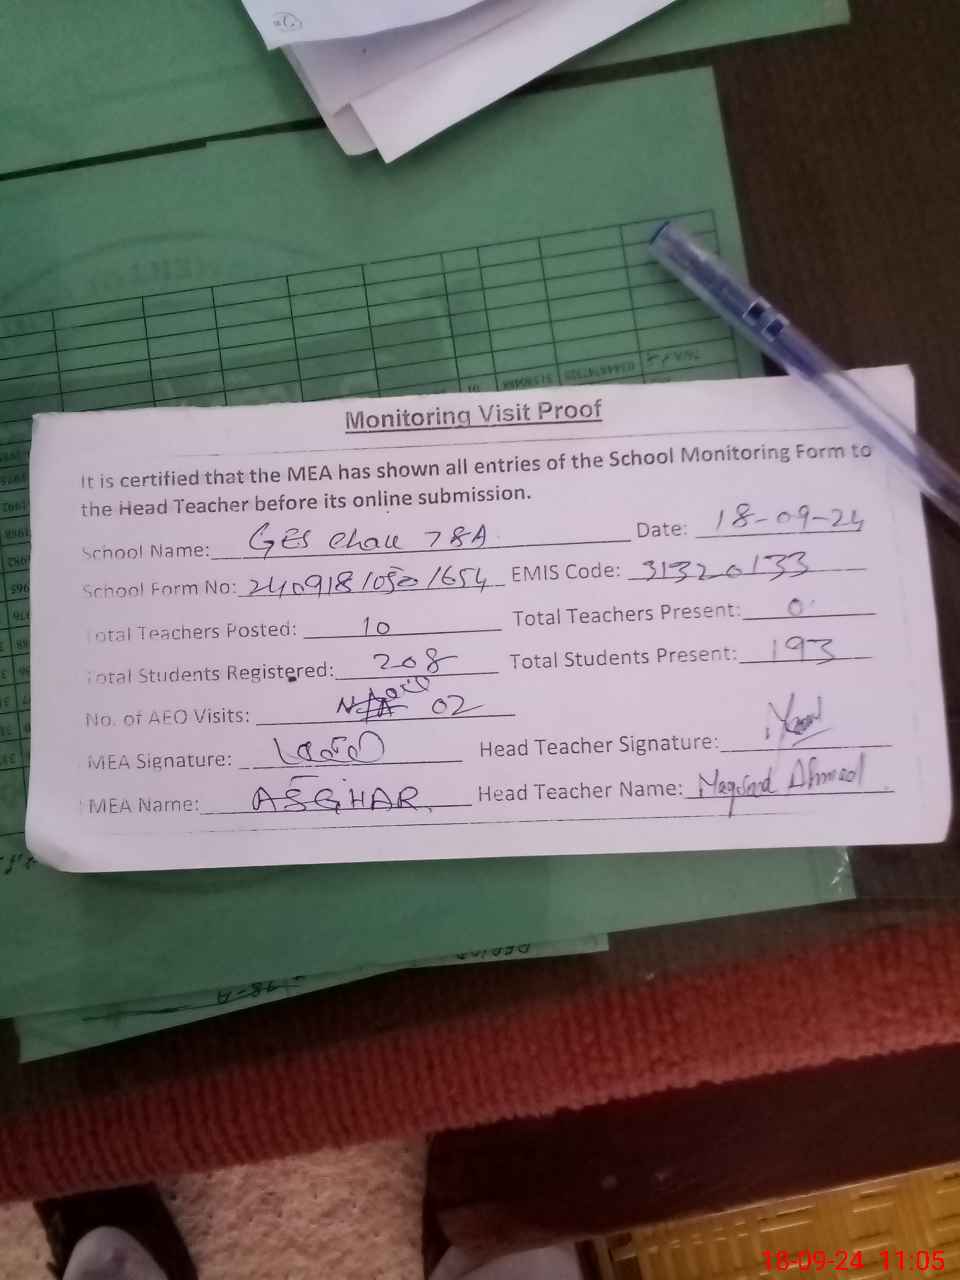 Monitoring Visit Proof
It is certified that the MEA has shown all entries of the School Monitoring Form to
the Head Teacher before its online submission.
School Name: GES Chak 78A Date: 18-09-24
School Form No: EMIS Code: 31320133
Total Teachers Posted: 10 Total Teachers Present:
Total Students Registered: 208 Total Students Present: 193
No. of AEO Visits: 02
MEA Signature: Head Teacher Signature:
MEA Name: ASGHAR Head Teacher Name: Maqsood Ahmad
18-09-24 11:05